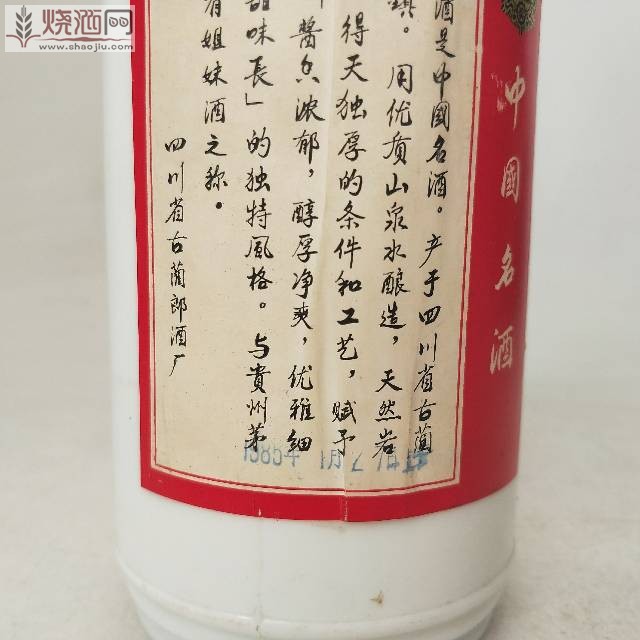 烧酒网
www.shaojiu.com
中國名酒
酒是中國名酒。产于四川省古蔺
镇。用优质山泉水酿造，天然岩
得天独厚的条件和工艺，赋予
酱香浓郁，醇厚净爽，优雅细
甜味長」的独特風格。与貴州茅
有姐妹酒之称。
四川省古藺郎酒厂
1985年1月2